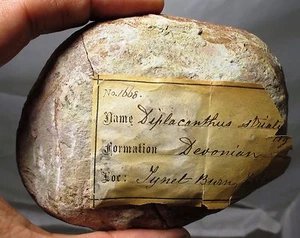 No. 1668.
Name Diplacanthus striat
Formation Devonian
Loc: Tynet Burn